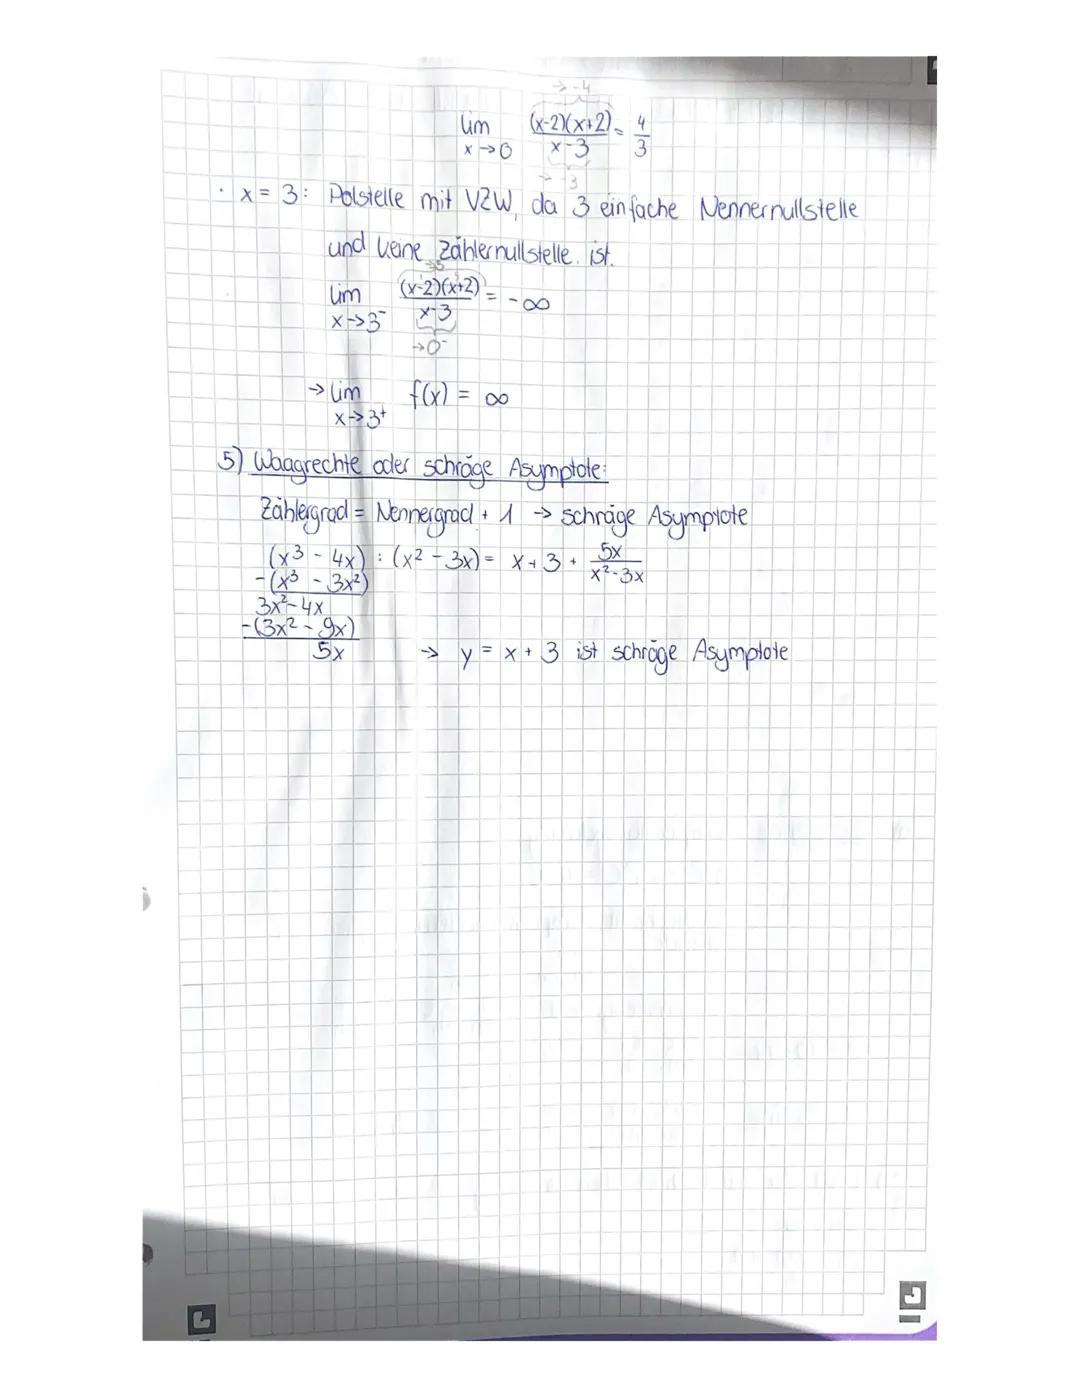 → -4
lim (x-2)(x+2) = 4
x→0 x-3 3
→ -3
· x = 3: Polstelle mit VZW, da 3 einfache Nennernullstelle
und keine Zählernullstelle ist.
→5
lim (x-2)(x+2) = -∞
x→3⁻ x-3
→0⁻
→ lim f(x) = ∞
x→3⁺
5) Waagrechte oder schräge Asymptote:
Zählergrad = Nennergrad + 1 → schräge Asymptote
(x³ - 4x) : (x² - 3x) = x + 3 + 5x
-(x³ - 3x²) x²-3x
3x²-4x
-(3x² - 9x)
5x → y = x + 3 ist schräge Asymptote